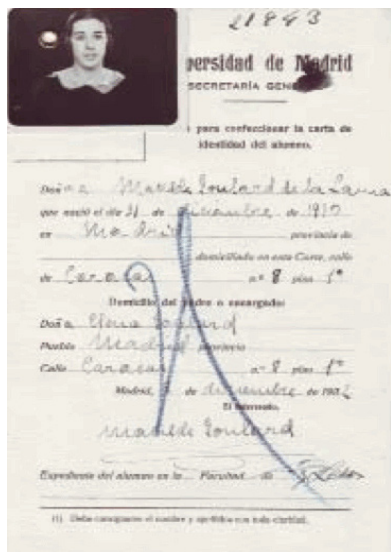 21993
versidad de Madrid
SECRETARÍA GENE
para confeccionar la carta de
identidad del alumno.
Doña Matilde Goulard de la Lama
que nació el día 31 de diciembre de 19
en Madrid provincia de
domiciliado en esta Corte, calle
de Caracas nº 8 piso 1º
Domicilio del padre o encargado:
Doña Elena Goulard
Pueblo Madrid provincia
Calle Caracas nº 8 piso 1º
Madrid, de diciembre de 193
El interesado,
Matilde Goulard
Expediente del alumno en la Facultad de
(1) Debe consignarse el nombre y apellidos con toda claridad.